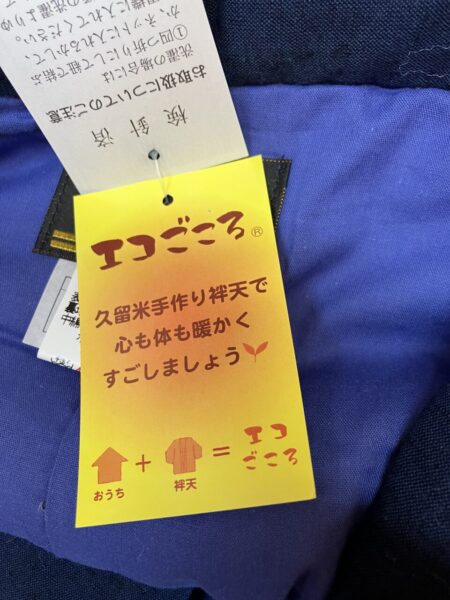 検針済
お取扱についてのご注意
洗濯の場合には
①四つ折りにして紐で結ぶ
か、ネットに入れるかして、
に入れてください。
エコごころ®
久留米手作り袢天で
心も体も暖かく
すごしましょう
おうち
+
袢天
=
エコ
ごころ